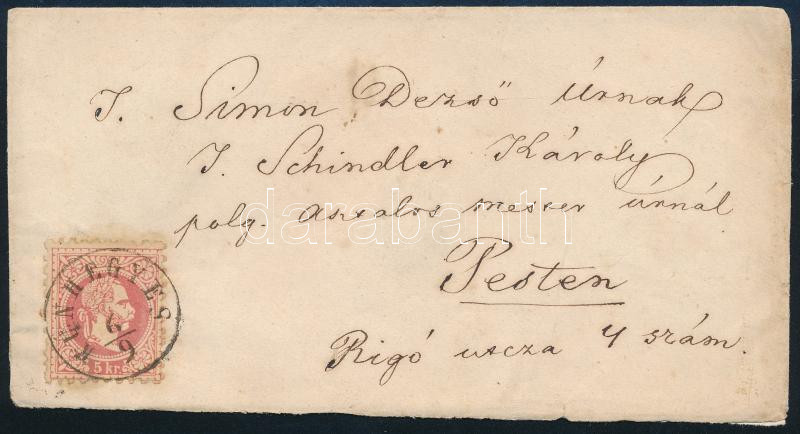 T. Simon Dezső Úrnak
T. Schindler Károly
polg. asztalos mester úrnál
Pesten
Rigó utcza 4 szám.
KUNHEGYES
5 kr.
darabanth